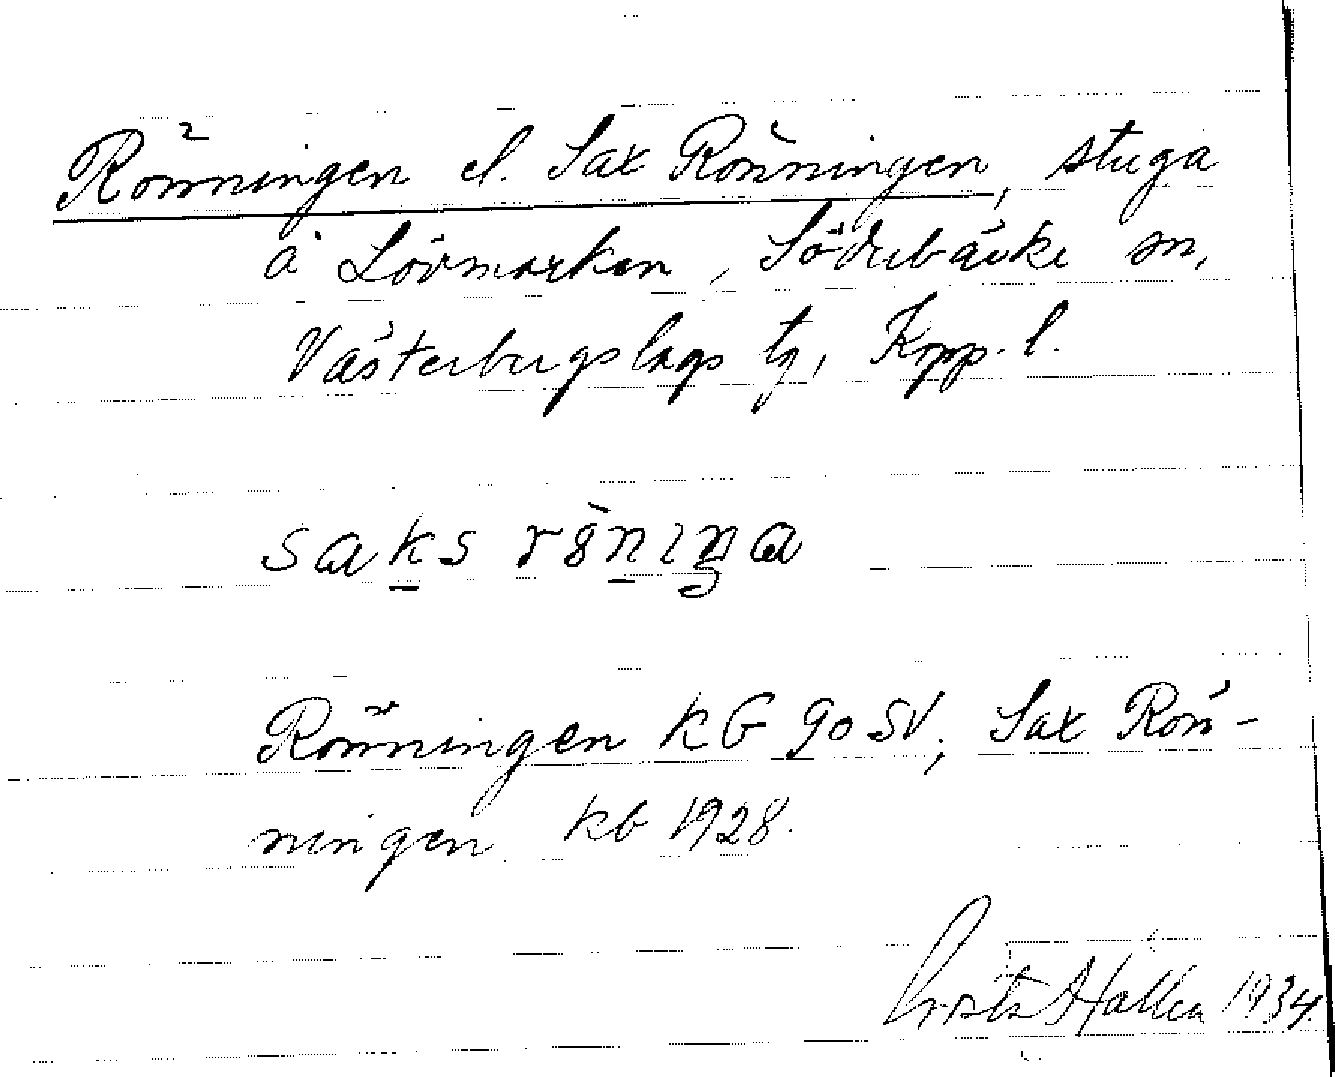 Rönningen el. Sax Rönningen, stuga
å Lövmarken, Söderbärke sn,
Västerbergslags tg, Kopp. l.
saks röniŋa
Rönningen KG 90 SV; Sax Rön-
ningen kb 1928.
Hallen 1934.